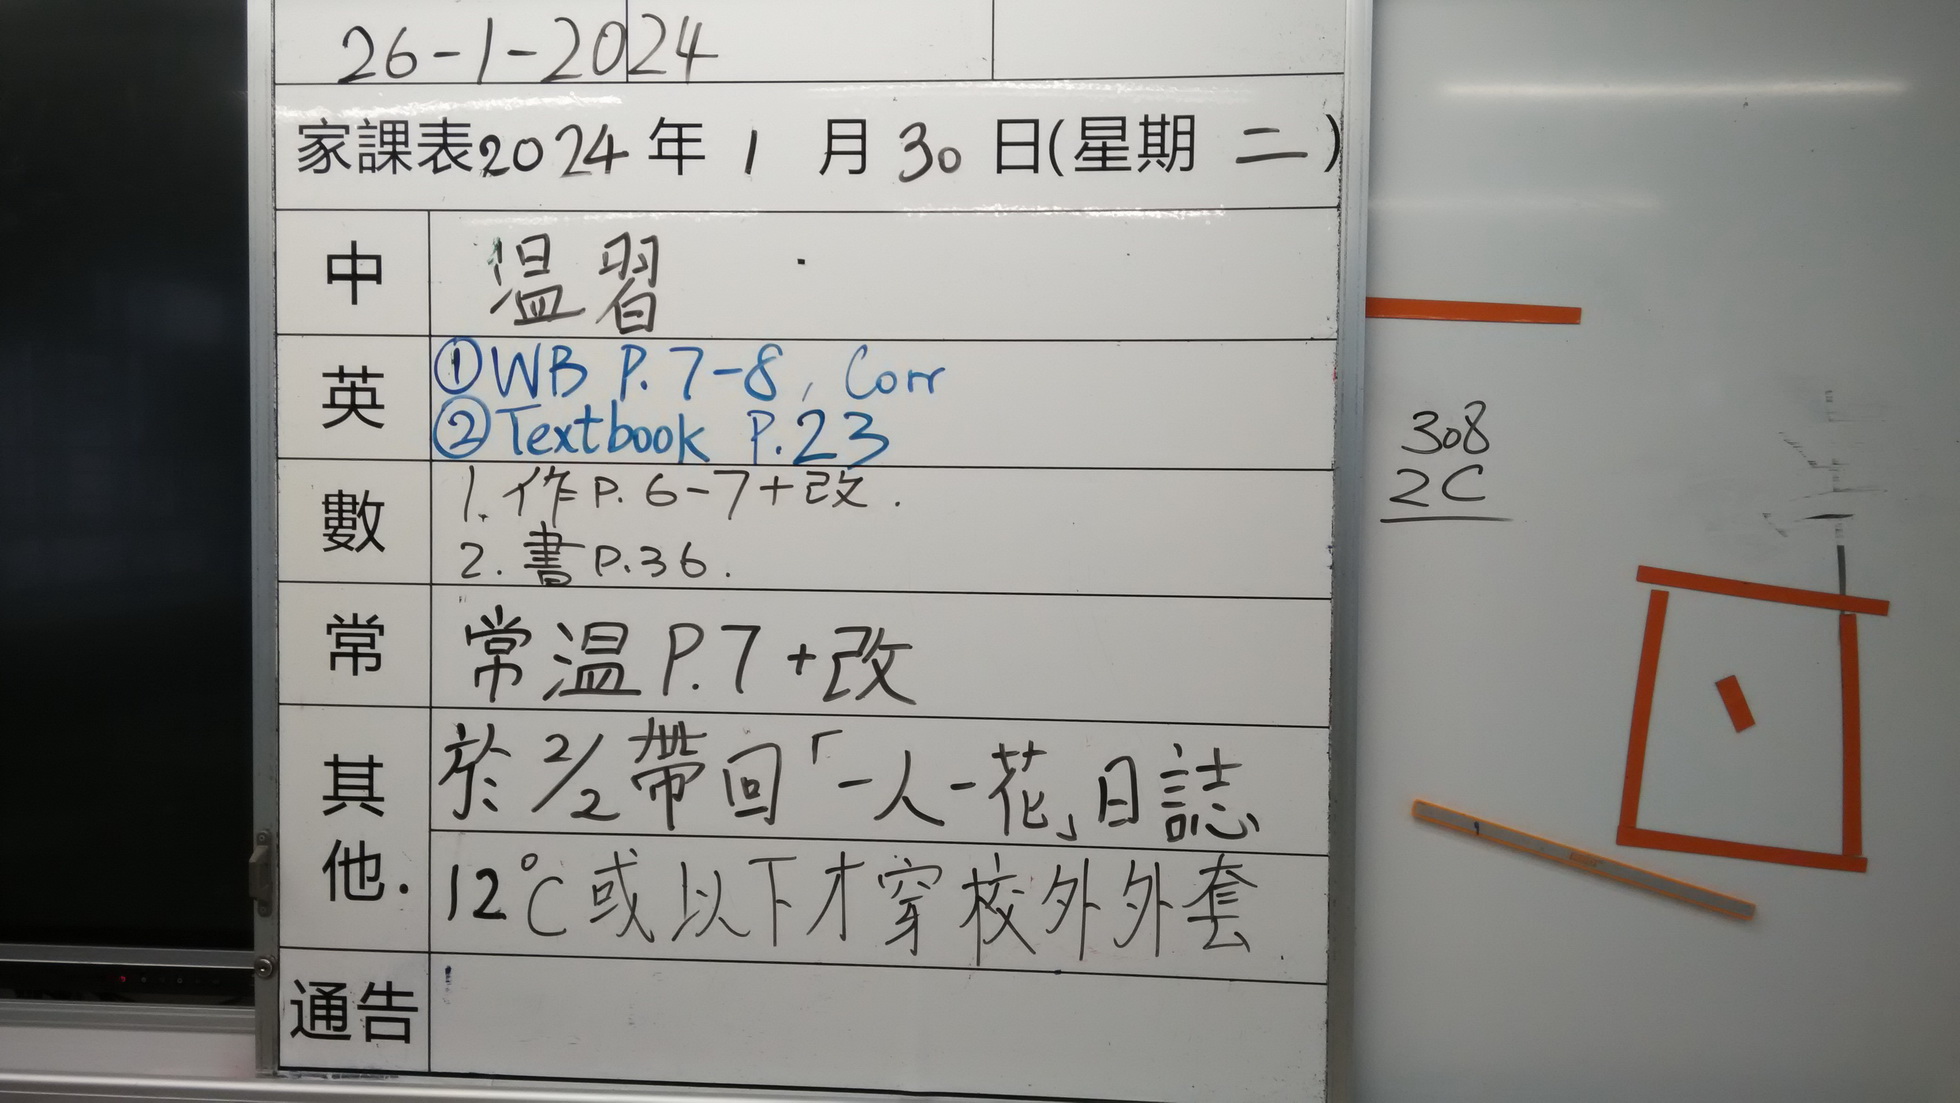 26-1-2024
家課表2024年1月30日(星期二)
中 溫習
英 ①WB P.7-8, Corr
②Textbook P.23
數 1. 作P.6-7+改.
2. 書P.36.
常 常溫P.7+改
其他. 於2/2帶回「一人一花」日誌
12℃或以下才穿校外外套
通告
308
2C